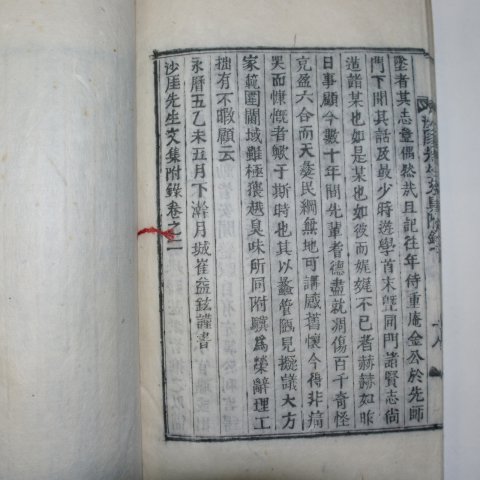 墜者其志豈偶然哉且記往年侍重庵金公於先師
門下聞其話及鼓少時遊學首末曁同門諸賢志尚
造詣某也如是某也如彼而娓娓不已者赫赫如昨
日事顧今數十年間先輩耆德盡就凋傷百千奇怪
充盈六合而天彛民綱無地可講感舊懷今得非痛
哭而慷慨者歟于斯時也其以蠡管陋見擬議大方
家範圍闊域雖極猥越臭味所同附驥爲榮辭理工
拙有不暇顧云
永曆五乙未五月下澣月城崔益鉉謹書
沙厓先生文集附錄卷之二